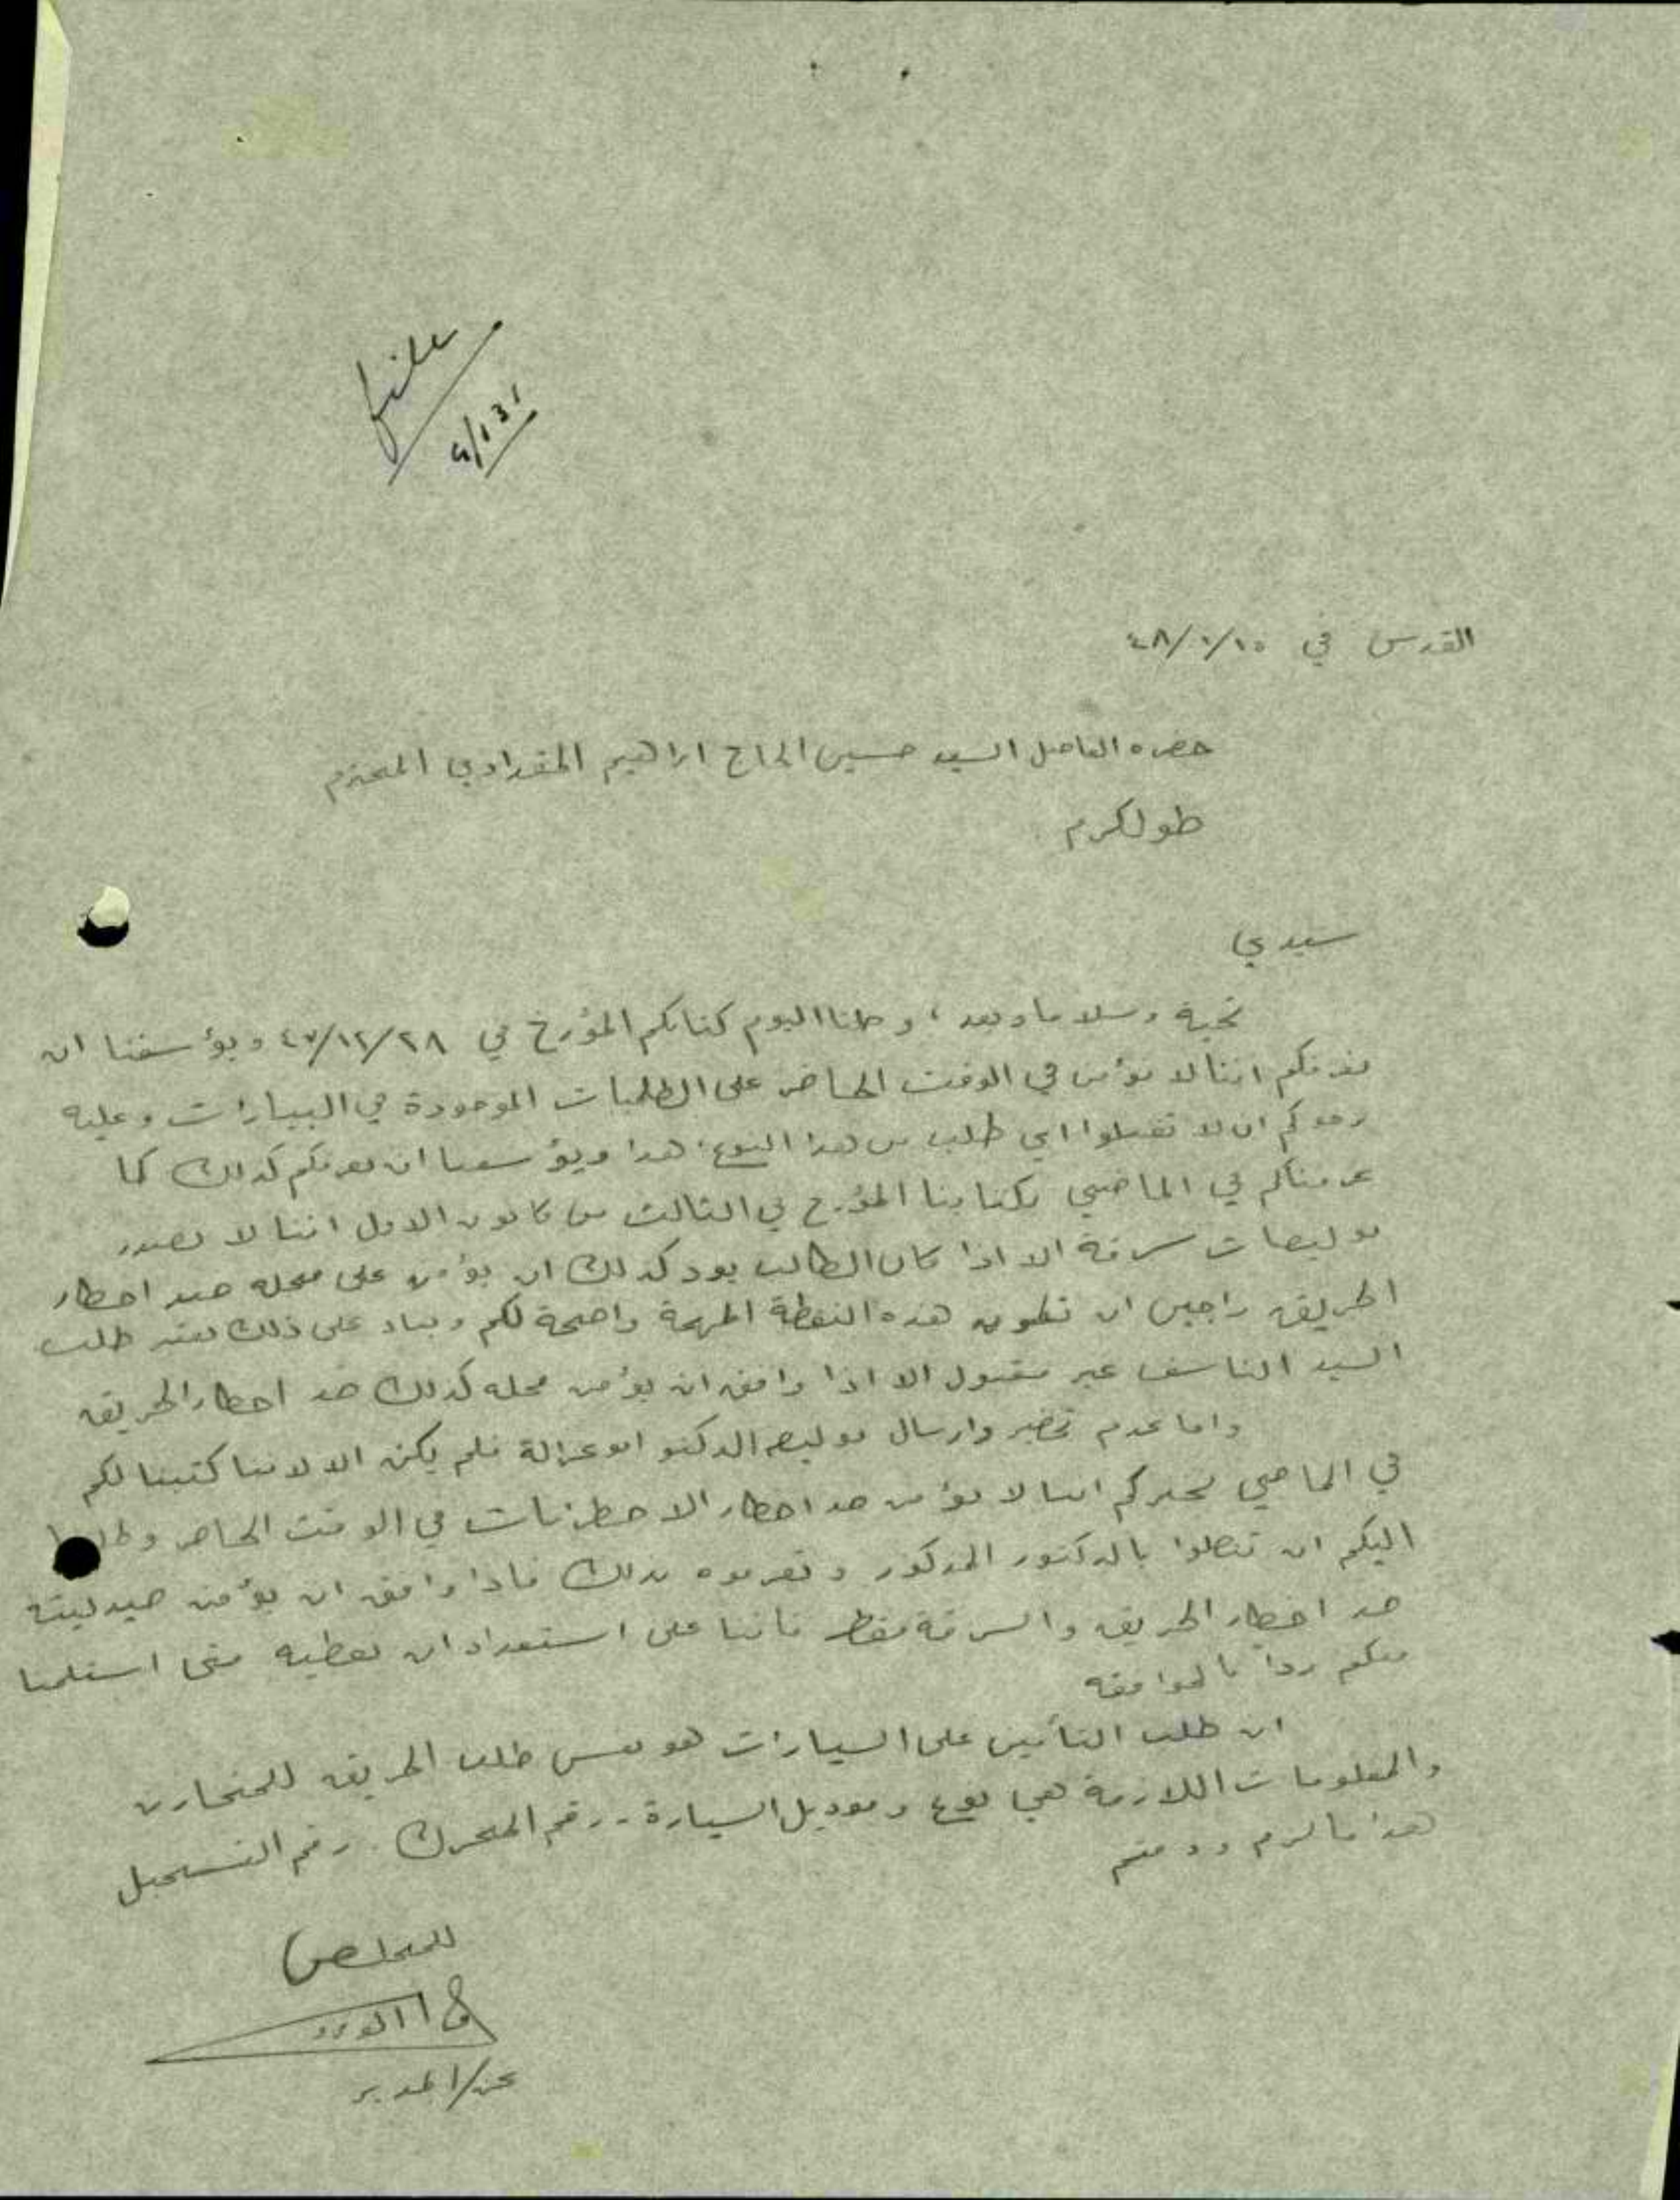 file
4/131
القدس في ٤٨/١/١٥
حضرة الفاضل السيد حسين الحاج ابراهيم المقدادي المحترم
طولكرم
سيدي
تحية وسلاما وبعد، وصلنا اليوم كتابكم المؤرخ في ٤٧/١٢/٢٨ ويؤسفنا ان
نعرفكم اننا لا نؤمن في الوقت الحاضر على الطلمبات الموجودة في البيارات وعليه
نرجوكم ان لا تقبلوا اي طلب من هذا النوع. هذا ويؤسفنا ان نعرفكم كذلك كما
عرفناكم في الماضي بكتابنا المؤرخ في الثالث من كانون الاول اننا لا نصدر
بوليصات سرقة الا اذا كان الطالب يود كذلك ان يؤمن على محله ضد اخطار
الحريق راجين ان تكون هذه النقطة المهمة واضحة لكم وبناء على ذلك نعتبر طلب
السيد الناشف غير مقبول الا اذا وافق ان يؤمن محله كذلك ضد اخطار الحريق
واما عدم تحضير وارسال بوليصة الدكتور ابو غزالة فلم يكن الا لاننا كتبنا لكم
في الماضي نخبركم اننا لا نؤمن ضد اخطار الاضطرابات في الوقت الحاضر وطلبنا
اليكم ان تتصلوا بالدكتور المذكور وتعرفوه بذلك فاذا وافق ان يؤمن صيدليته
ضد اخطار الحريق والسرقة فقط فاننا على استعداد ان نعطيه متى استلمنا
منكم ردا بالموافقة
ان طلب التأمين على السيارات هو نفس طلب الحريق للمتجارين
والمعلومات اللازمة هي نوع وموديل السيارة - رقم المحرك. رقم التسجيل
هذا ما لزم ودمتم
المخلص
عن/المدير